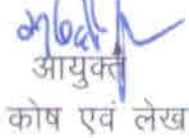 आयुक्त
कोष एवं लेखा